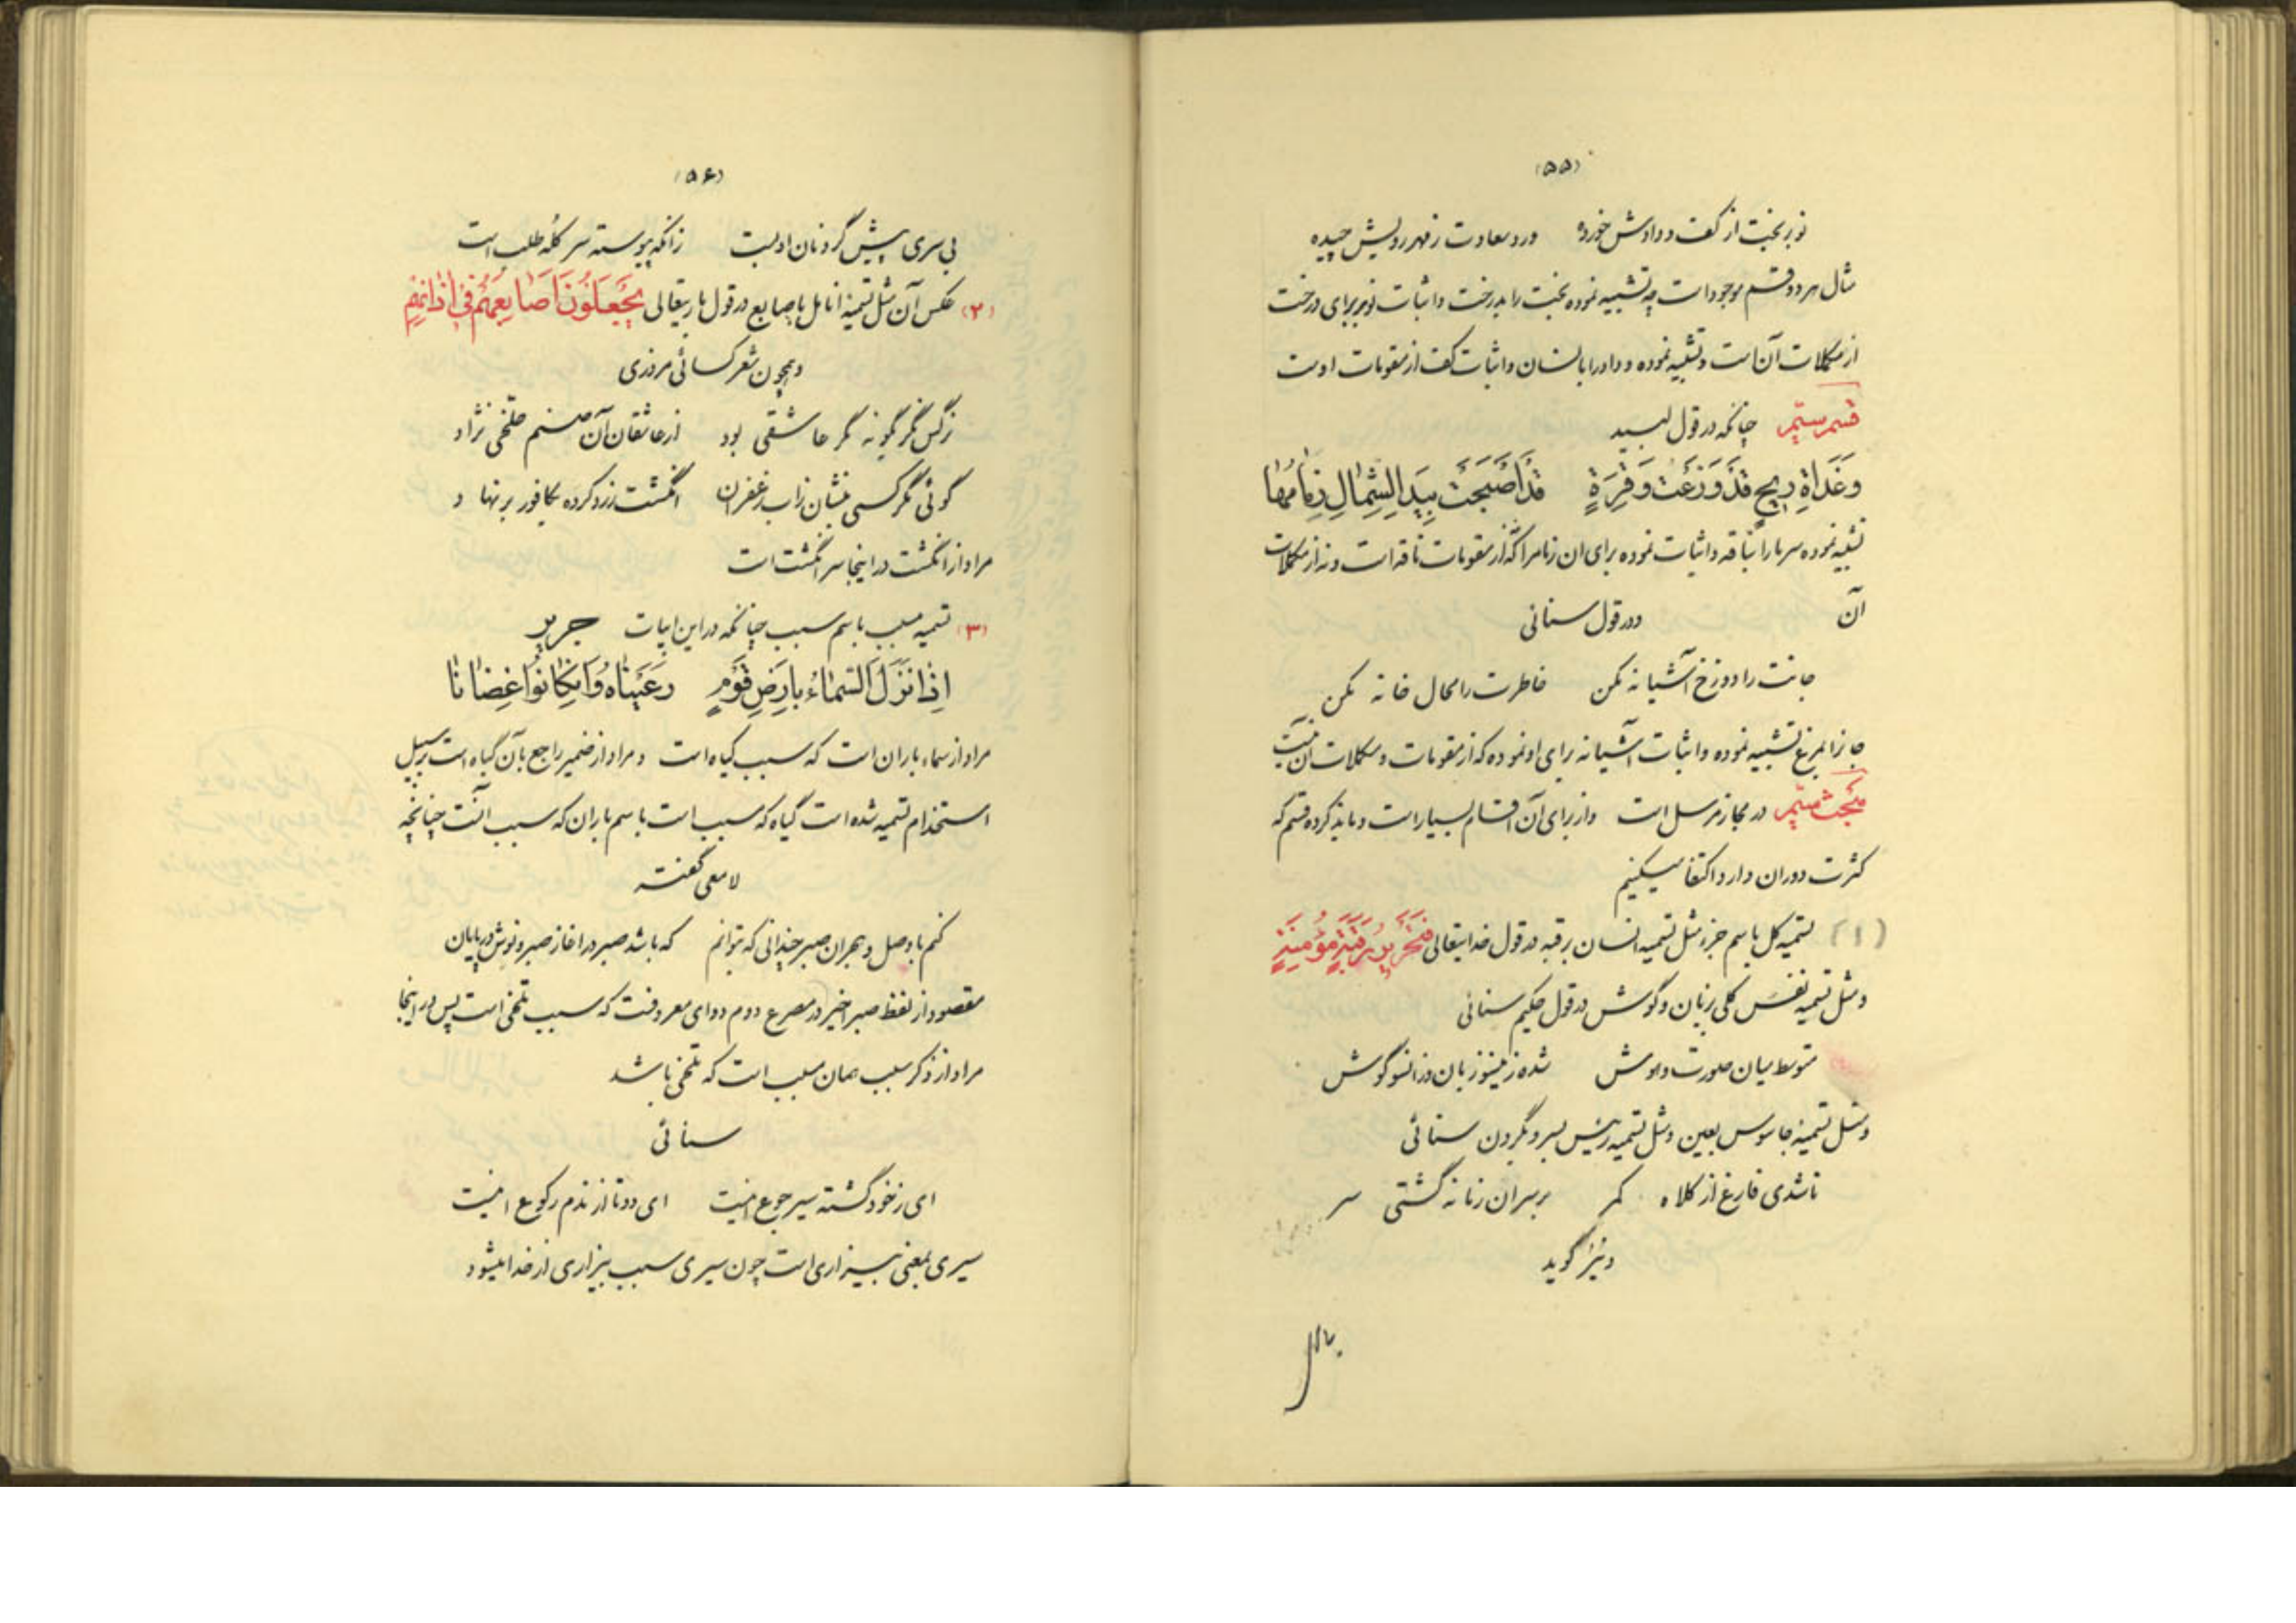 (۵۵)
نوبر بخت از کف دادش خورده ورد سعادت ز فهر رویش چیده
مثال هر دو قسم موجود است چه تشبیه نموده بخت را بدرخت و اثبات نوبر برای درخت
از مکملات آن است و تشبیه نموده وداد را بانسان و اثبات کف از مقومات اوست
قسم سیم چنانکه در قول لبید
وَغَداةِ ریحٍ قَد وَزَعتُ وَقِرَّةٍ قَد أَصبَحَت بِیَدِ الشِمالِ زِمامُها
تشبیه نموده سرما را بناقه و اثبات نموده برای ان زمام را که از مقومات ناقه است و نه از مکملات
آن ودر قول سنائی
جانت را دوزخ آشیانه مکن خاطرت را محال خانه مکن
جانرا بمرغ تشبیه نموده و اثبات آشیانه برای او نموده که از مقومات و مکملات آن نیست
مبحث سیم در مجاز مرسل است و از برای آن اقسام بسیار است و ما بذکر ده قسم که
کثرت دوران دارد اکتفا میکنیم
(۱) تسمیه کل باسم جزء مثل تسمیه انسان برقبه در قول خدایتعالی فَتَحریرُ رَقَبَةٍ مُؤمِنَةٍ
و مثل تسمیه نفس کلی بزبان و گوش در قول حکیم سنائی
متوسط میان صورت و هوش شده زینسو زبان وزانسو گوش
و مثل تسمیه جاسوس بعین و مثل تسمیه رئیس بسر و بگردن سنائی
تا شدی فارغ از کلاه کمر بر سران زمانه گشتی سر
و نیز گوید
(۵۶)
بی سری پیش گردنان ادبست زانکه پیوسته سر کله طلب است
(۲) عکس آن مثل تسمیه انامل باصابع در قول باریتعالی یَجعَلُونَ اَصابِعَهُم فی اٰذانِهِم
و همچون شعر کسائی مروزی
نرگس نگر چگونه مگر عاشقی بود از عاشقان آن صنم خلخی نژاد
گوئی مگر کسی بنشان زاب زعفران انگشت زرد کرده بکافور برنهاد
مراد از انگشت در اینجا سر انگشت است
(۳) تسمیه مسبب باسم سبب چنانکه در این ابیات جریر
اِذا نَزَلَ السَّماءُ بِاَرضِ قَومٍ رَعَیناهُ وَ اِن کانُوا غِضاباً
مراد از سماء باران است که سبب گیاه است و مراد از ضمیر راجع بآن گیاه است بر سبیل
استخدام تسمیه شده است گیاه که مسبب است باسم باران که سبب آنست چنانچه
لامعی گفته
کنم با وصل و هجران صبر چندانی که بتوانم که باشد صبر در اغاز صبر و نوش در پایان
مقصود از لفظ صبر اخیر در مصرع دوم دوای معروفت که سبب تلخی است پس در اینجا
مراد از ذکر سبب همان مسبب است که تلخی باشد
سنائی
ای ز خود گشته سیر جوع اینست ای دو تا از ندم رکوع اینست
سیری بمعنی بیزاری است چون سیری سبب بیزاری از غذا میشود